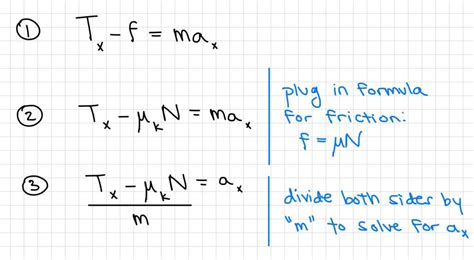 ① Tₓ - f = maₓ
② Tₓ - μₖN = maₓ
plug in formula
for friction:
f = μN
③ Tₓ - μₖN = aₓ
m
divide both sides by
"m" to solve for aₓ